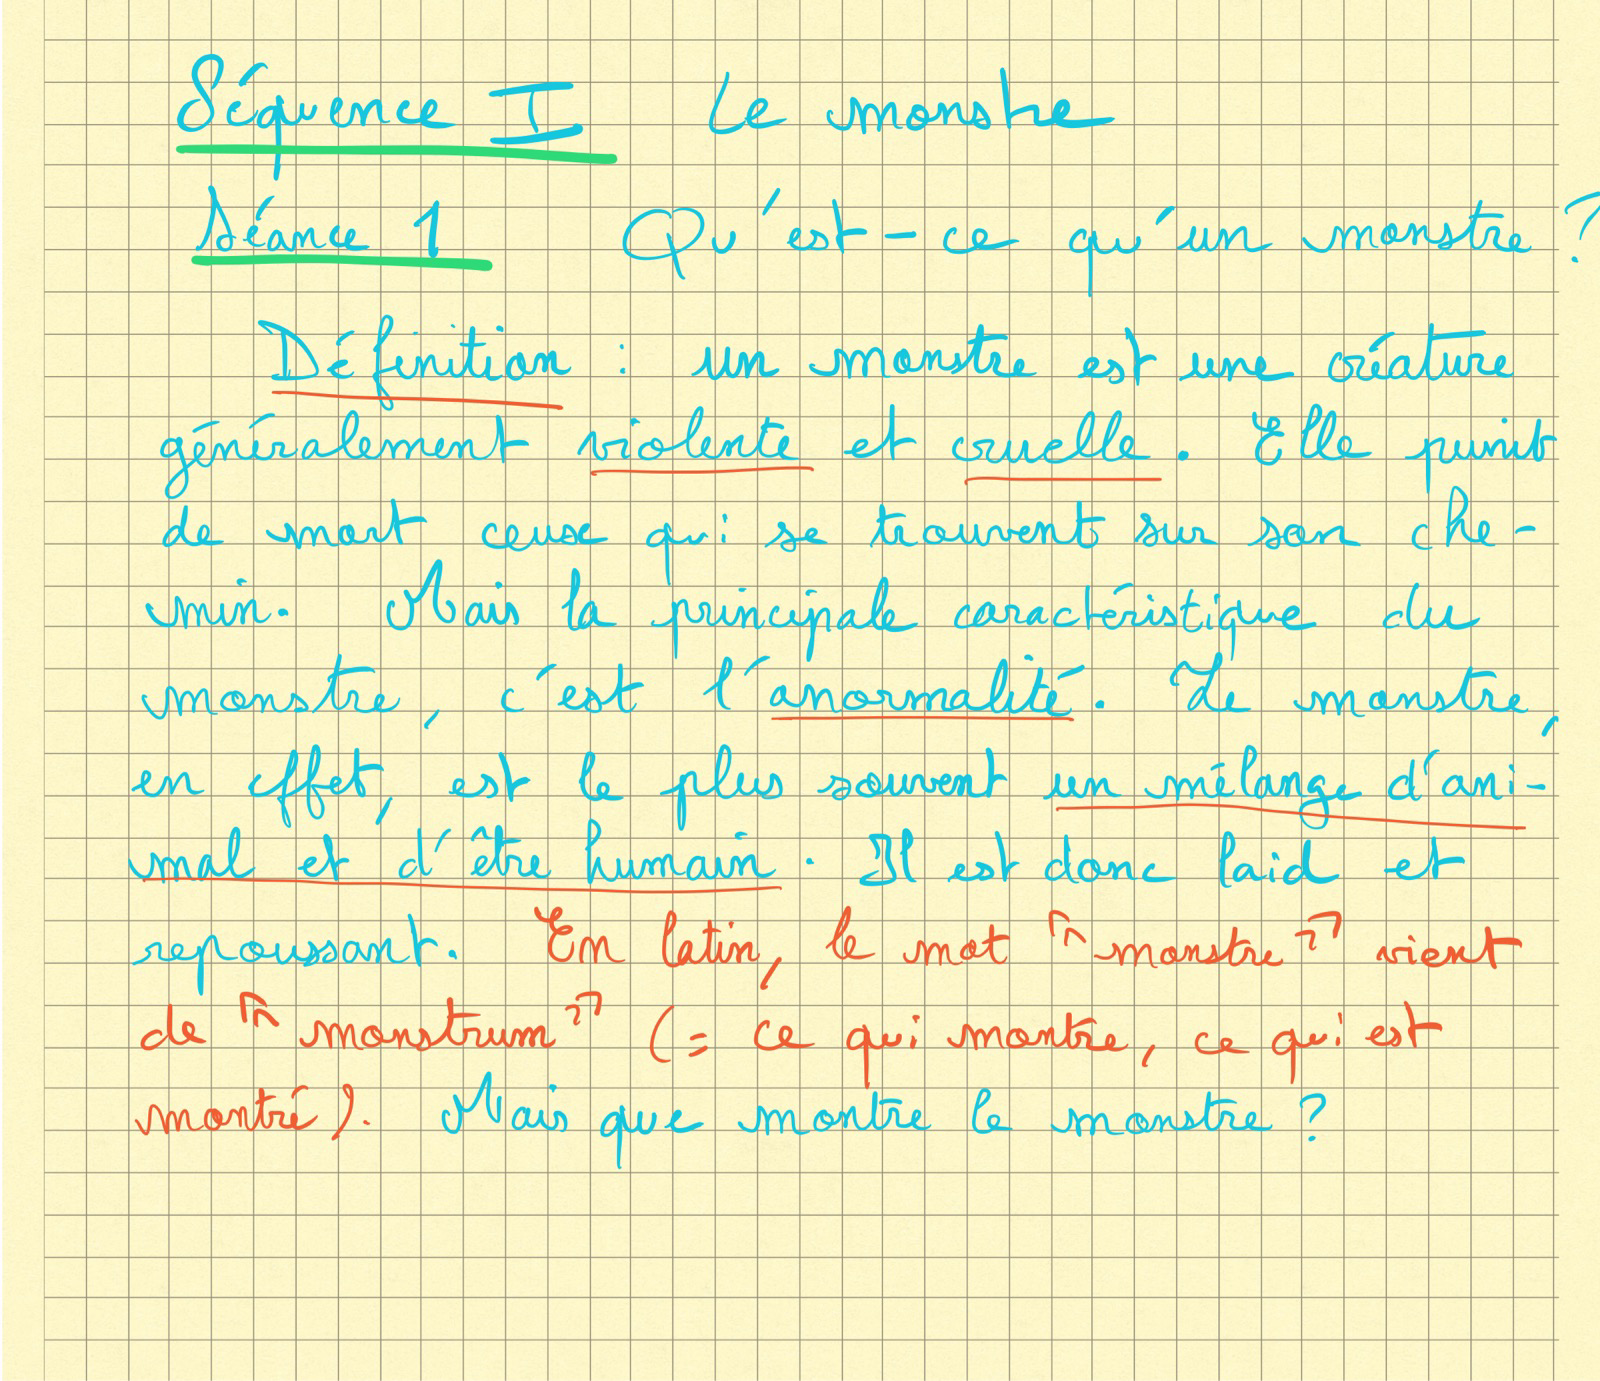 Séquence I Le monstre
Séance 1 Qu'est-ce qu'un monstre ?
Définition : un monstre est une créature
généralement violente et cruelle. Elle punit
de mort ceux qui se trouvent sur son che-
min. Mais la principale caractéristique du
monstre, c'est l'anormalité. Le monstre,
en effet, est le plus souvent un mélange d'ani-
mal et d'être humain. Il est donc laid et
repoussant. En latin, le mot "monstre" vient
de "monstrum" (= ce qui montre, ce qui est
montré). Mais que montre le monstre ?